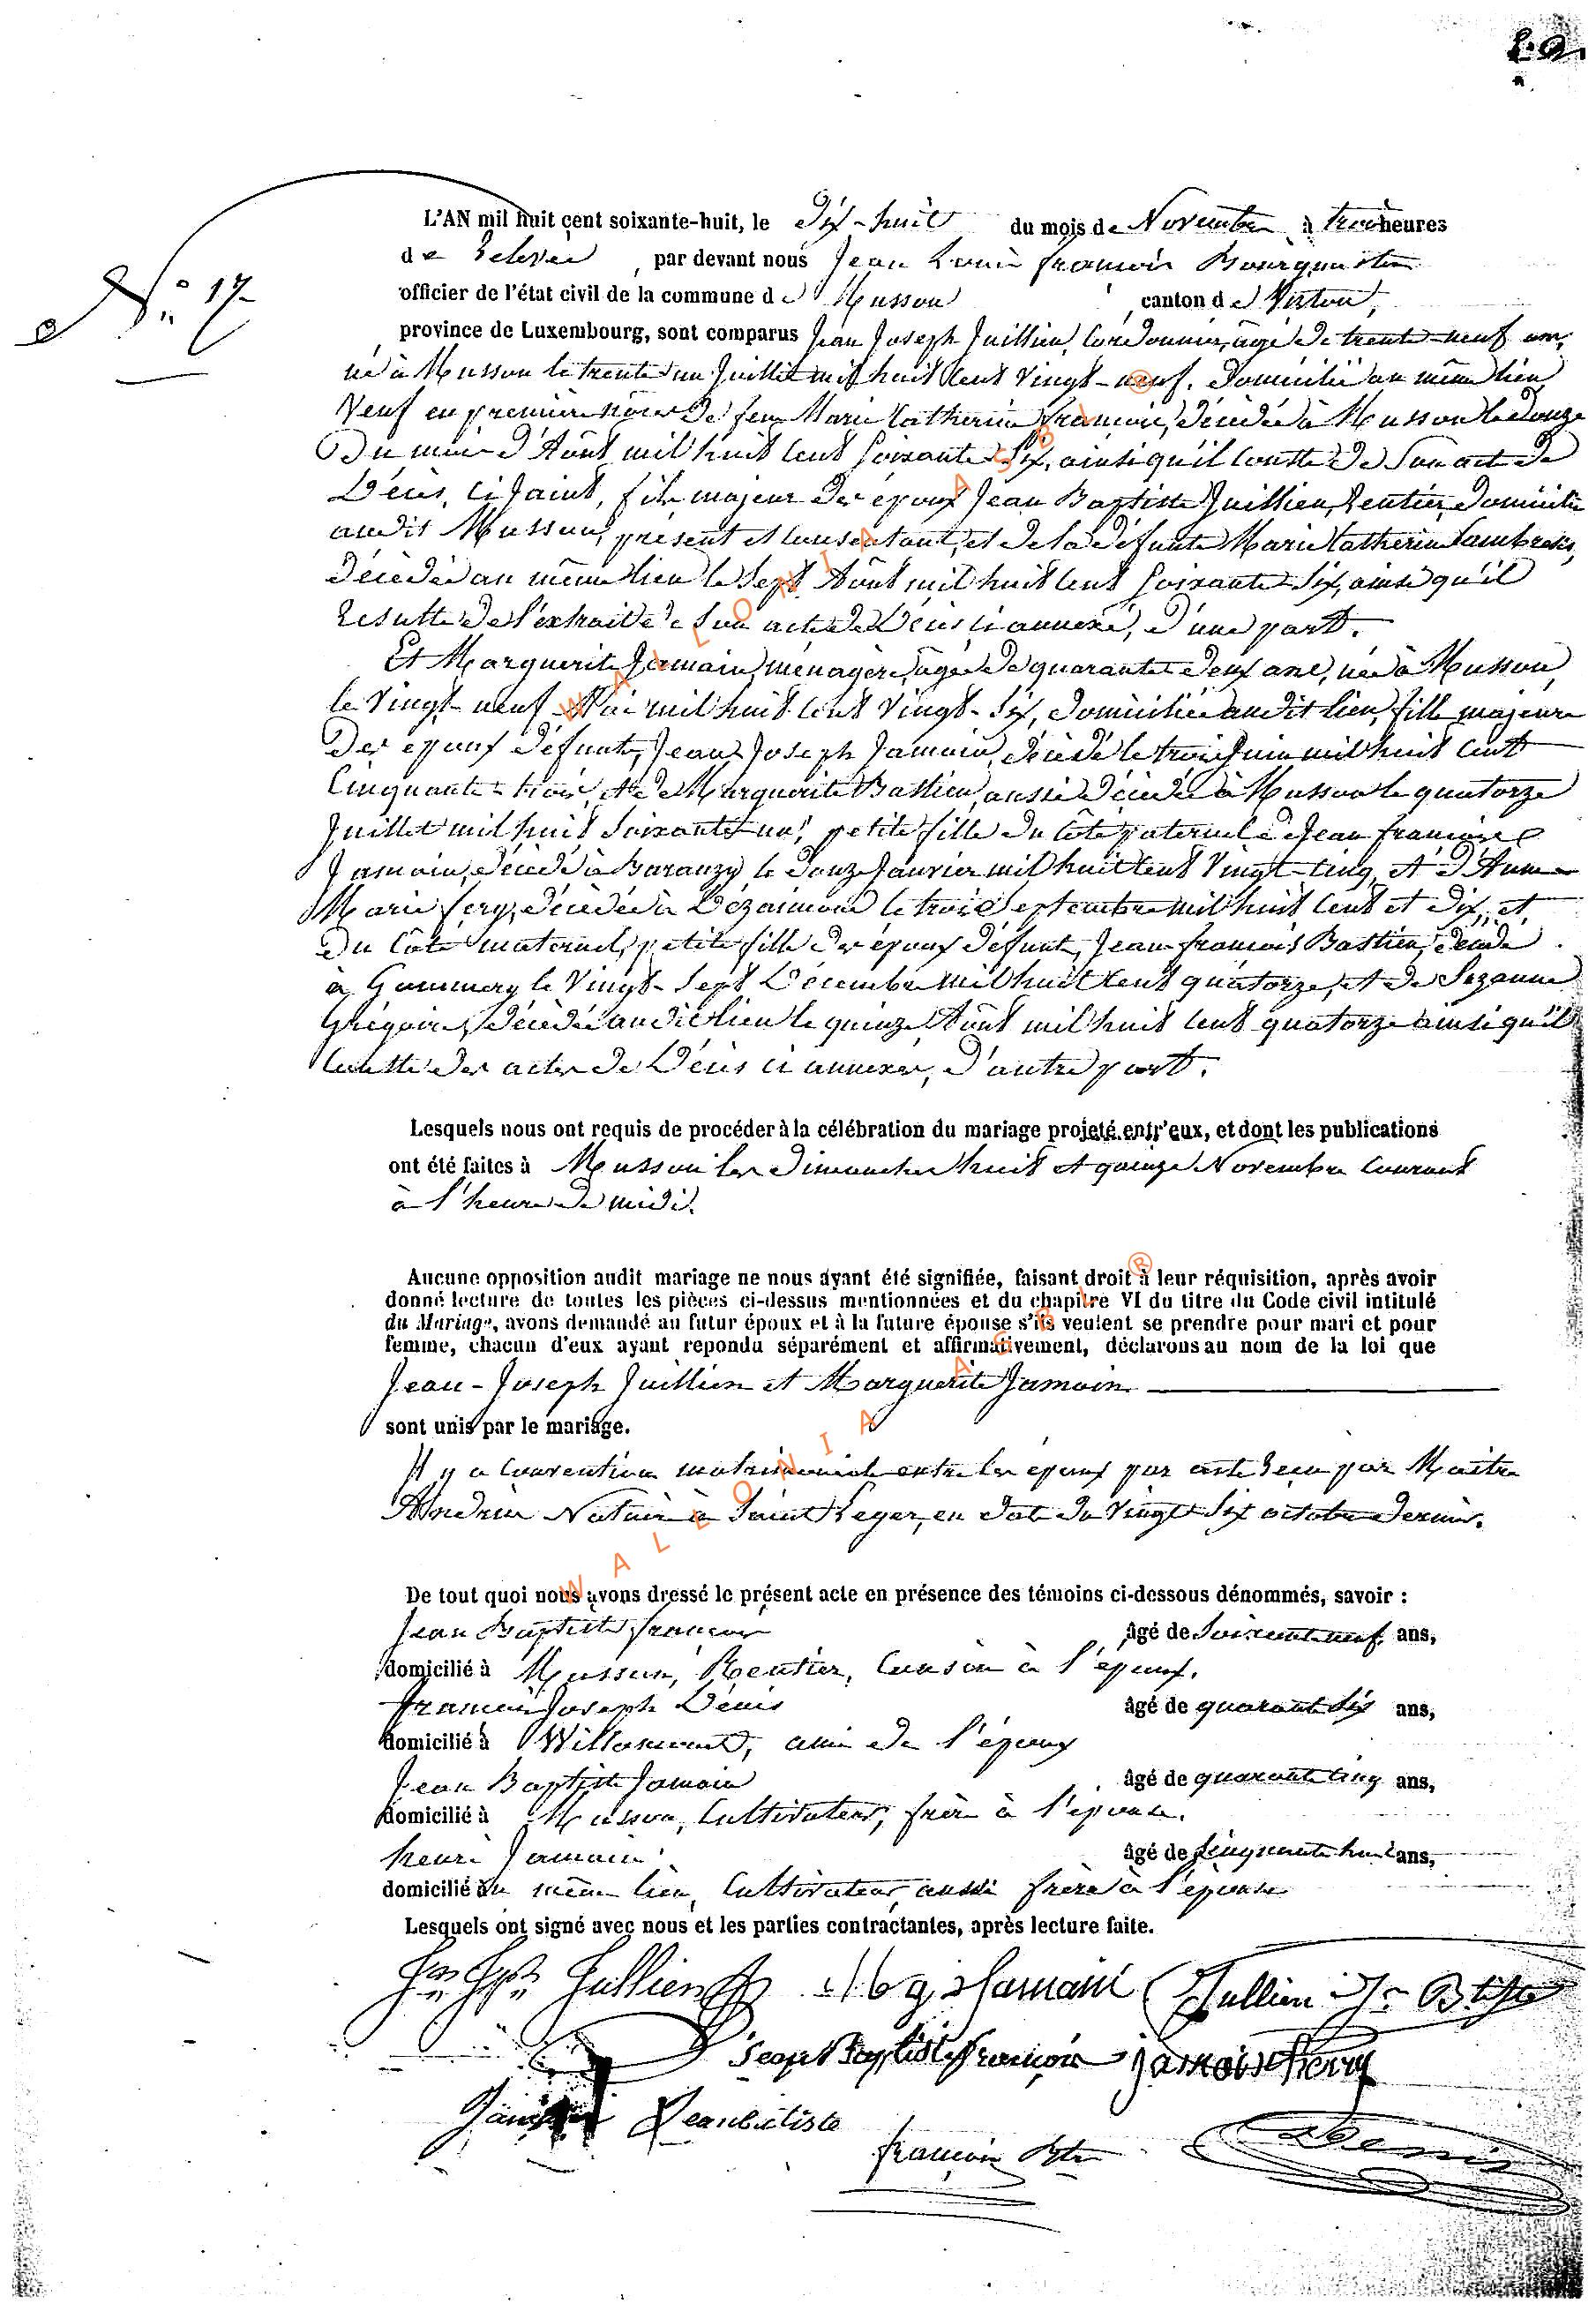 N° 17
L'AN mil huit cent soixante-huit, le Dix-huit du mois de Novembre à trois heures
de Relevée, par devant nous Jean Louis françois
officier de l'état civil de la commune de Musson, canton de Virton,
province de Luxembourg, sont comparus Jean Joseph Juillien, Cordonnier, âgé de trente-neuf ans,
né à Musson le trente un Juillet mil huit Cent Vingt-neuf, Domicilié au même lien
Veuf en première nôces de feu Marie Catherine françois, décédée à Musson le douze
Du mois d'Août mil huit Cent Soixante Six, ainsi qu'il Conste de Son acte de
Décès, Ci Joint, fils majeur des époux Jean Baptiste Juillien, Rentier, Domicilié
audit Musson, présent et Consentant, et de la défunte Marie Catherine Lambrets,
décédée au même lieu le Sept Août mil huit Cent Soixante Six, ainsi qu'il
Resulte de l'extrait de Son acte de Décès ci annexé, d'une part.
Et Marguerite Jamain, ménagère, âgée de quarante deux ans, née à Musson,
le Vingt neuf Mai mil huit Cent Vingt-Six, Domiciliée audit lieu, fille majeure
Des époux défunts, Jean Joseph Jamain, décédé le trois Juin mil huit Cent
Cinquante-trois, et de Marguerite Bastien, aussi décédée à Musson le quatorze
Juillet mil huit Soixante un, petite fille du Côté paternel de Jean françois
Jamain, décédé à Baranzy le douze Janvier mil huit Cent Vingt-Cinq, et d'Anne
Marie fery, décédée à le trois Septembre mil huit Cent et Dix, et,
Du Côté maternel, petite fille des époux défunts, Jean françois Bastien, décédé
à Gommery le Vingt-Sept Décembre mil huit Cent quatorze, et de Sezanne
Grégoire, décédée audit lieu le quinze Août mil huit Cent quatorze ainsi qu'il
Conste des actes de Décès ci annexés, d'autre part.
Lesquels nous ont requis de procéder à la célébration du mariage projeté entr'eux, et dont les publications
ont été faites à Musson les Dimanches huit et quinze Novembre Courant
à l'heure de midi.
Aucune opposition audit mariage ne nous ayant été signifiée, faisant droit à leur réquisition, après avoir
donné lecture de toutes les pièces ci-dessus mentionnées et du chapitre VI du titre du Code civil intitulé
du Mariage, avons demandé au futur époux et à la future épouse s'ils veulent se prendre pour mari et pour
femme, chacun d'eux ayant repondu séparément et affirmativement, déclarons au nom de la loi que
Jean-Joseph Juillien et Marguerite Jamain
sont unis par le mariage.
Il y a Convention matrimoniale entre les époux par acte Reçu par Maître
Notaire à Saint Leger, en date du Vingt Six octobre dernier.
De tout quoi nous avons dressé le présent acte en présence des témoins ci-dessous dénommés, savoir :
Jean Baptiste françois âgé de Soixante neuf ans,
domicilié à Musson, Rentier, Cousin à l'époux.
françois Joseph Dénis âgé de quarante Six ans,
domicilié à Willancourt, ami de l'époux
Jean Baptiste Jamain âgé de quarante Cinq ans,
domicilié à Musson, Cultivateur, frère à l'épouse.
henri Jamain âgé de Cinquante huit ans,
domicilié au même lieu, Cultivateur, aussi frère à l'épouse
Lesquels ont signé avec nous et les parties contractantes, après lecture faite.
Jn Jph Jullien Mg Jamain Jullien Jn Btiste
Jean Baptiste françois jamain henry
Jamain Jeanbatiste
françois Denis
WALLONIA ASBL ®
WALLONIA ASBL ®